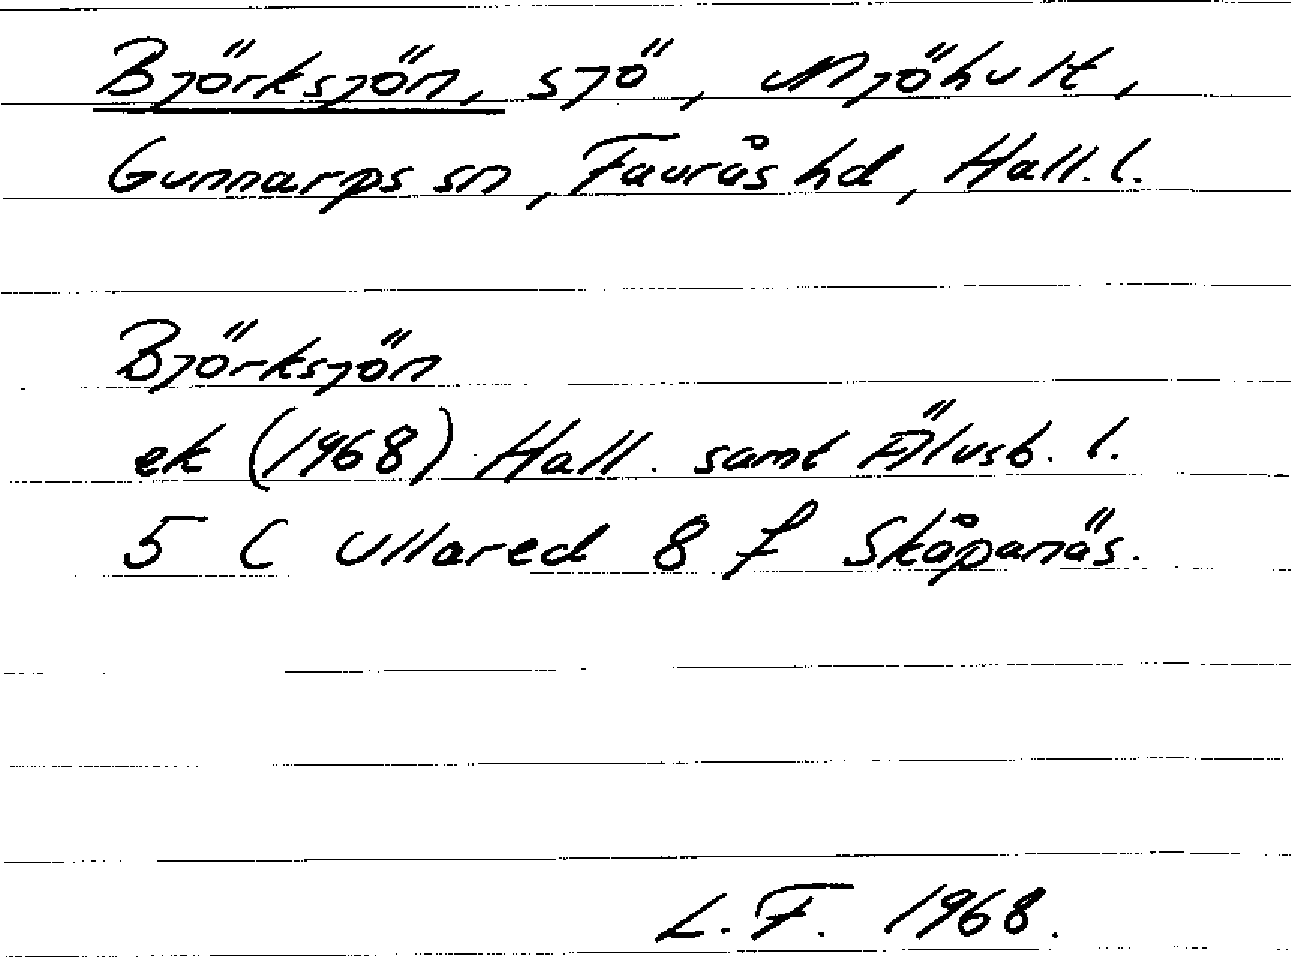 Björksjön, sjö, Mjöhult,
Gunnarps sn, Faurås hd, Hall. l.
Björksjön
ek (1968) Hall. samt Älvsb. l.
5 C Ullared 8 f Skåpanäs.
L. F. 1968.